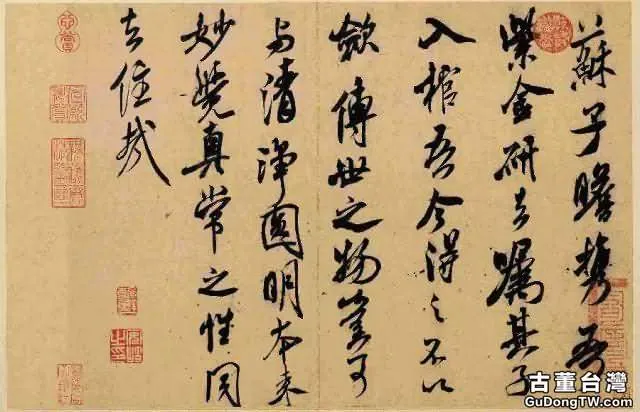 蘇子瞻攜吾
紫金研去囑其子
入棺吾今得之不以
歛傳世之物豈可
與清淨圓明本來
妙覺真常之性同
去住哉
古董台灣
GuDongTW.com